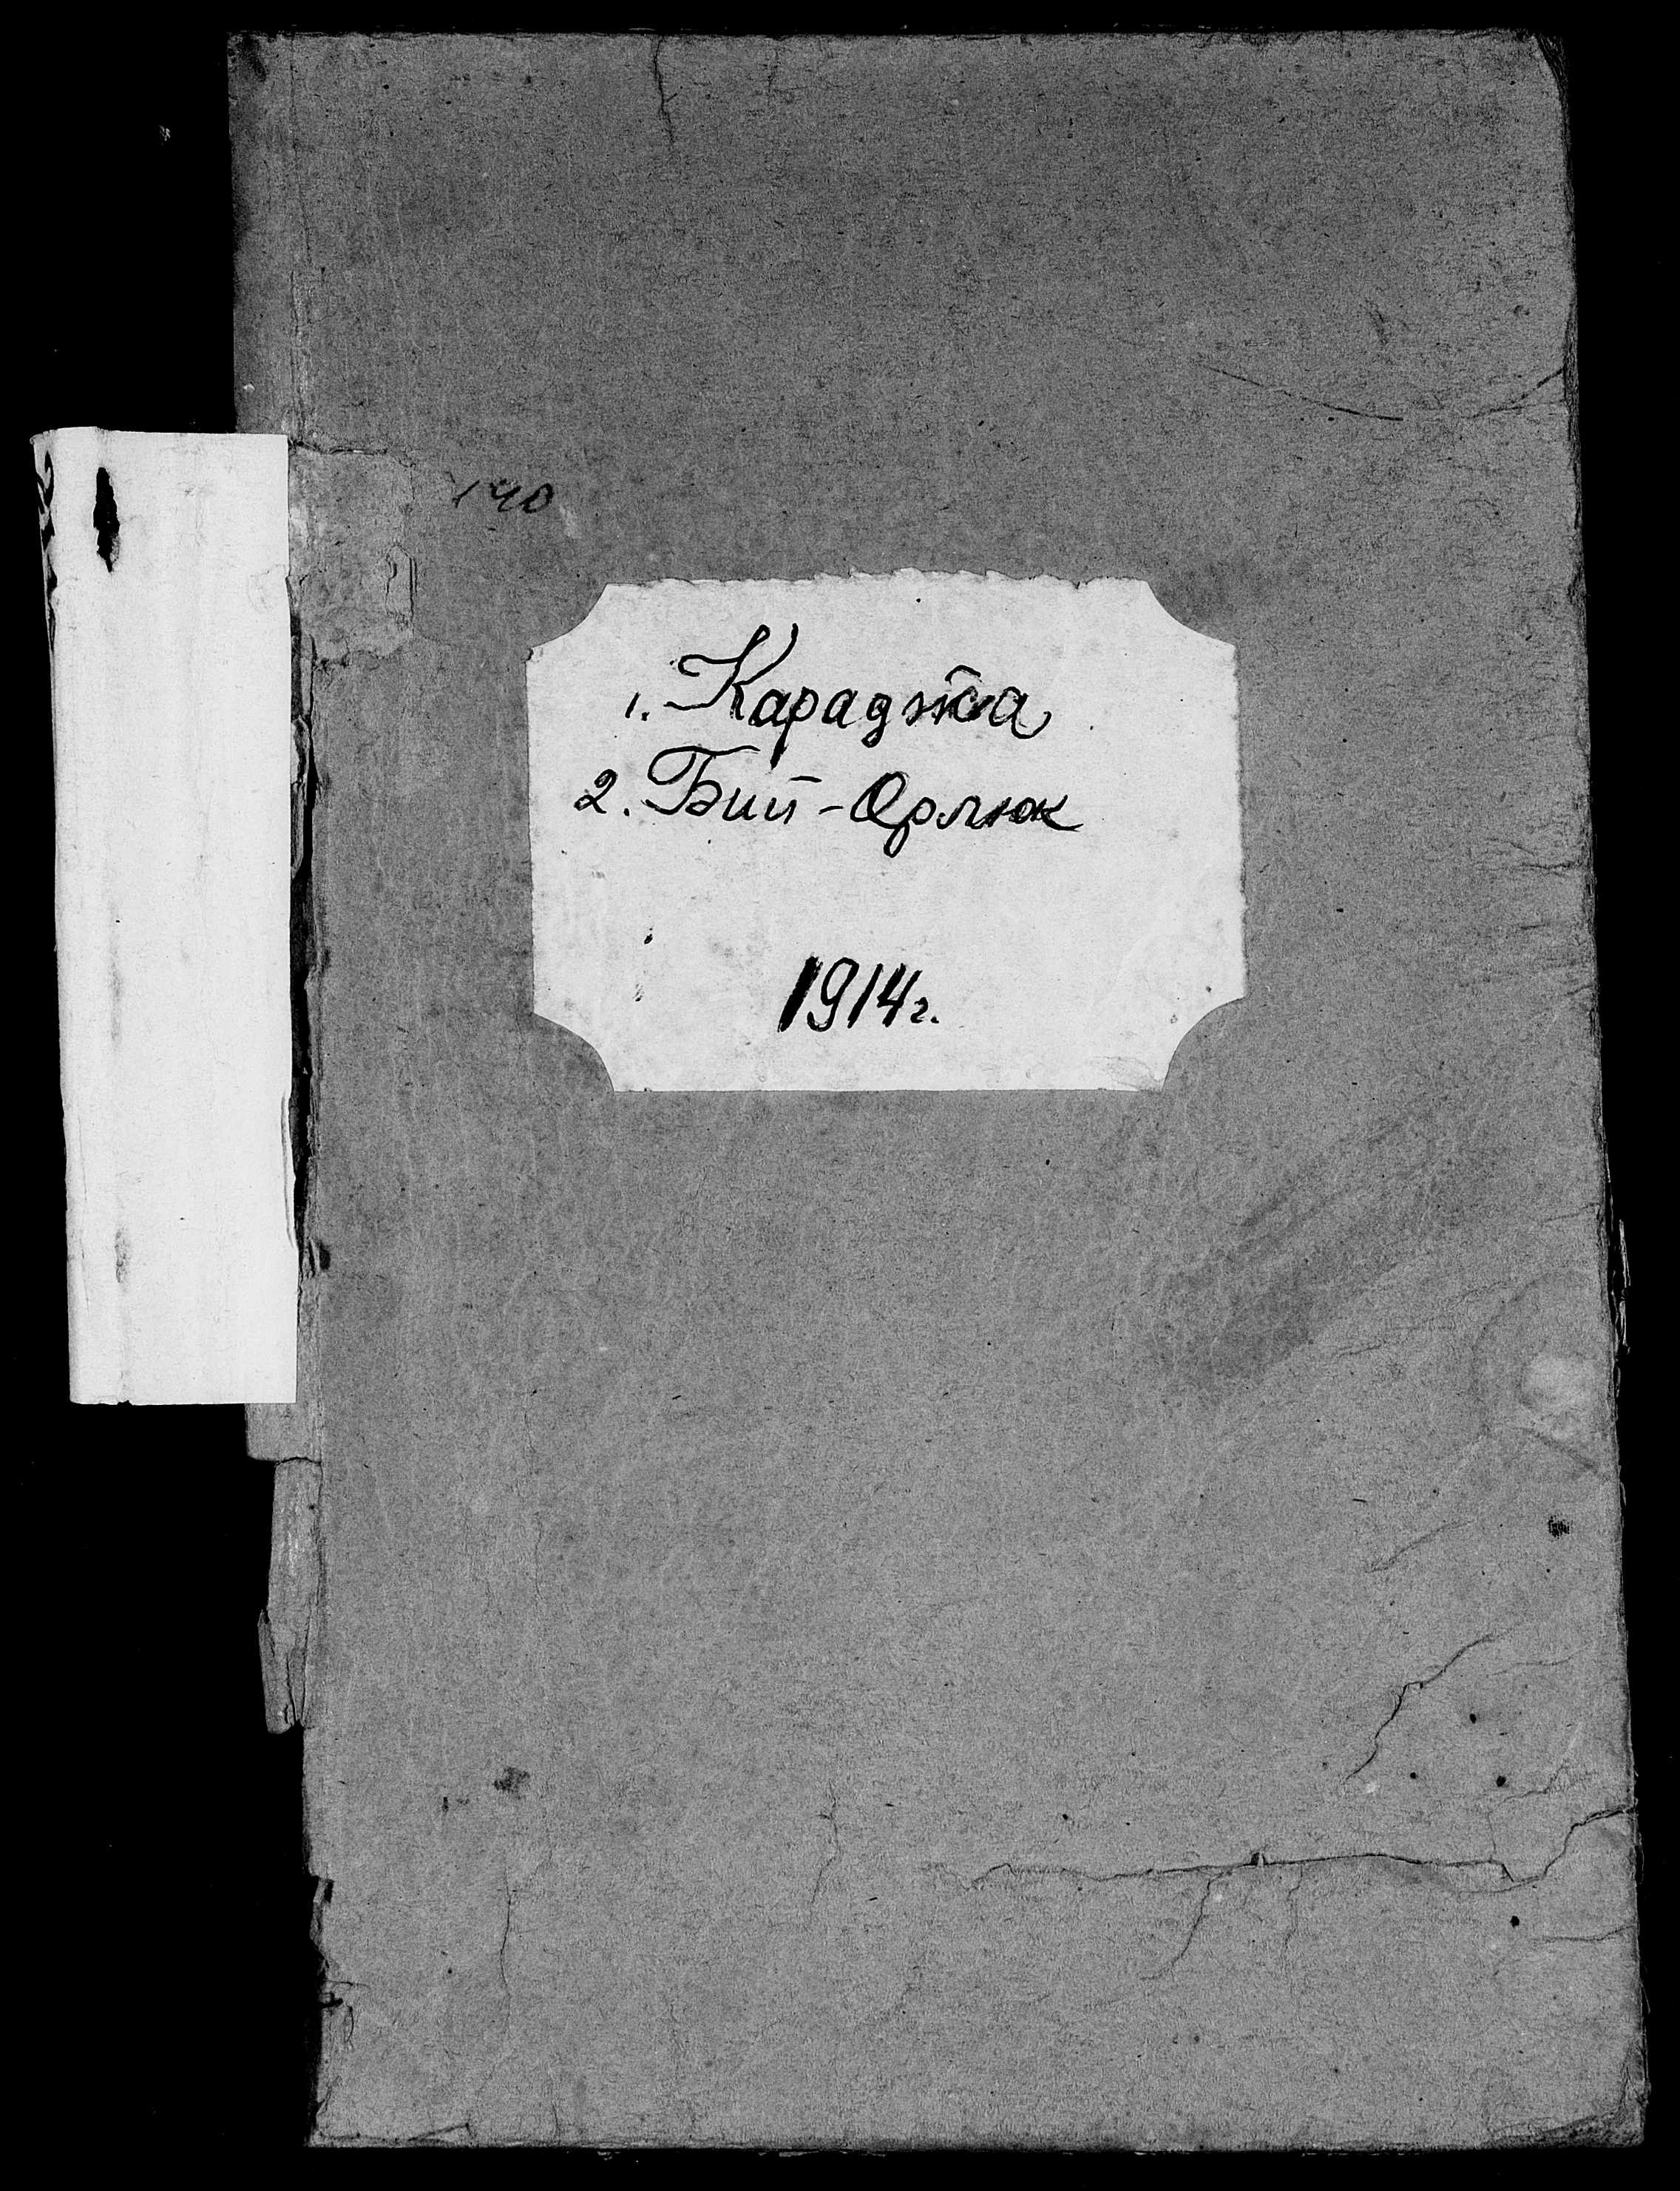 140
1. Караджа
2. Бий-Орлюк
1914г.